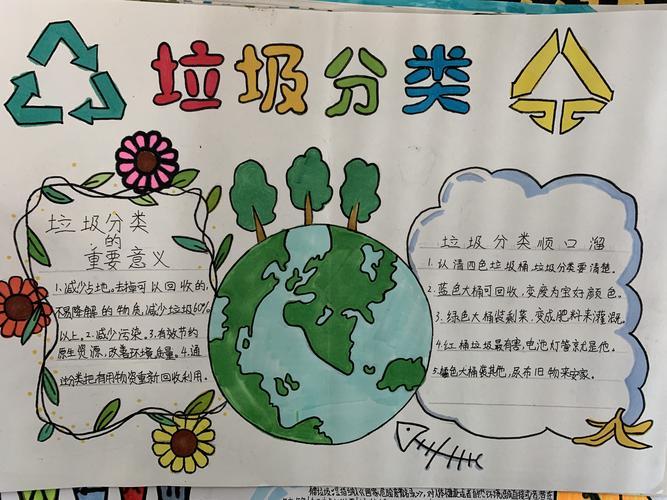 垃圾分类
垃圾分类
的
重要意义
1.减少占地,去掉可以回收的,
不易降解的物质,减少垃圾60%
以上。2.减少污染。3.有效节约
原生资源,改善环境质量。4.通
过分类把有用物资重新回收利用。
垃圾分类顺口溜
1.认清四色垃圾桶,垃圾分类要清楚。
2.蓝色大桶可回收,变废为宝好颜色。
3.绿色大桶装剩菜,变成肥料来灌溉。
4.红桶垃圾最有害,电池灯管就是他。
5.橙色大桶装其他,尿布旧物来安家。